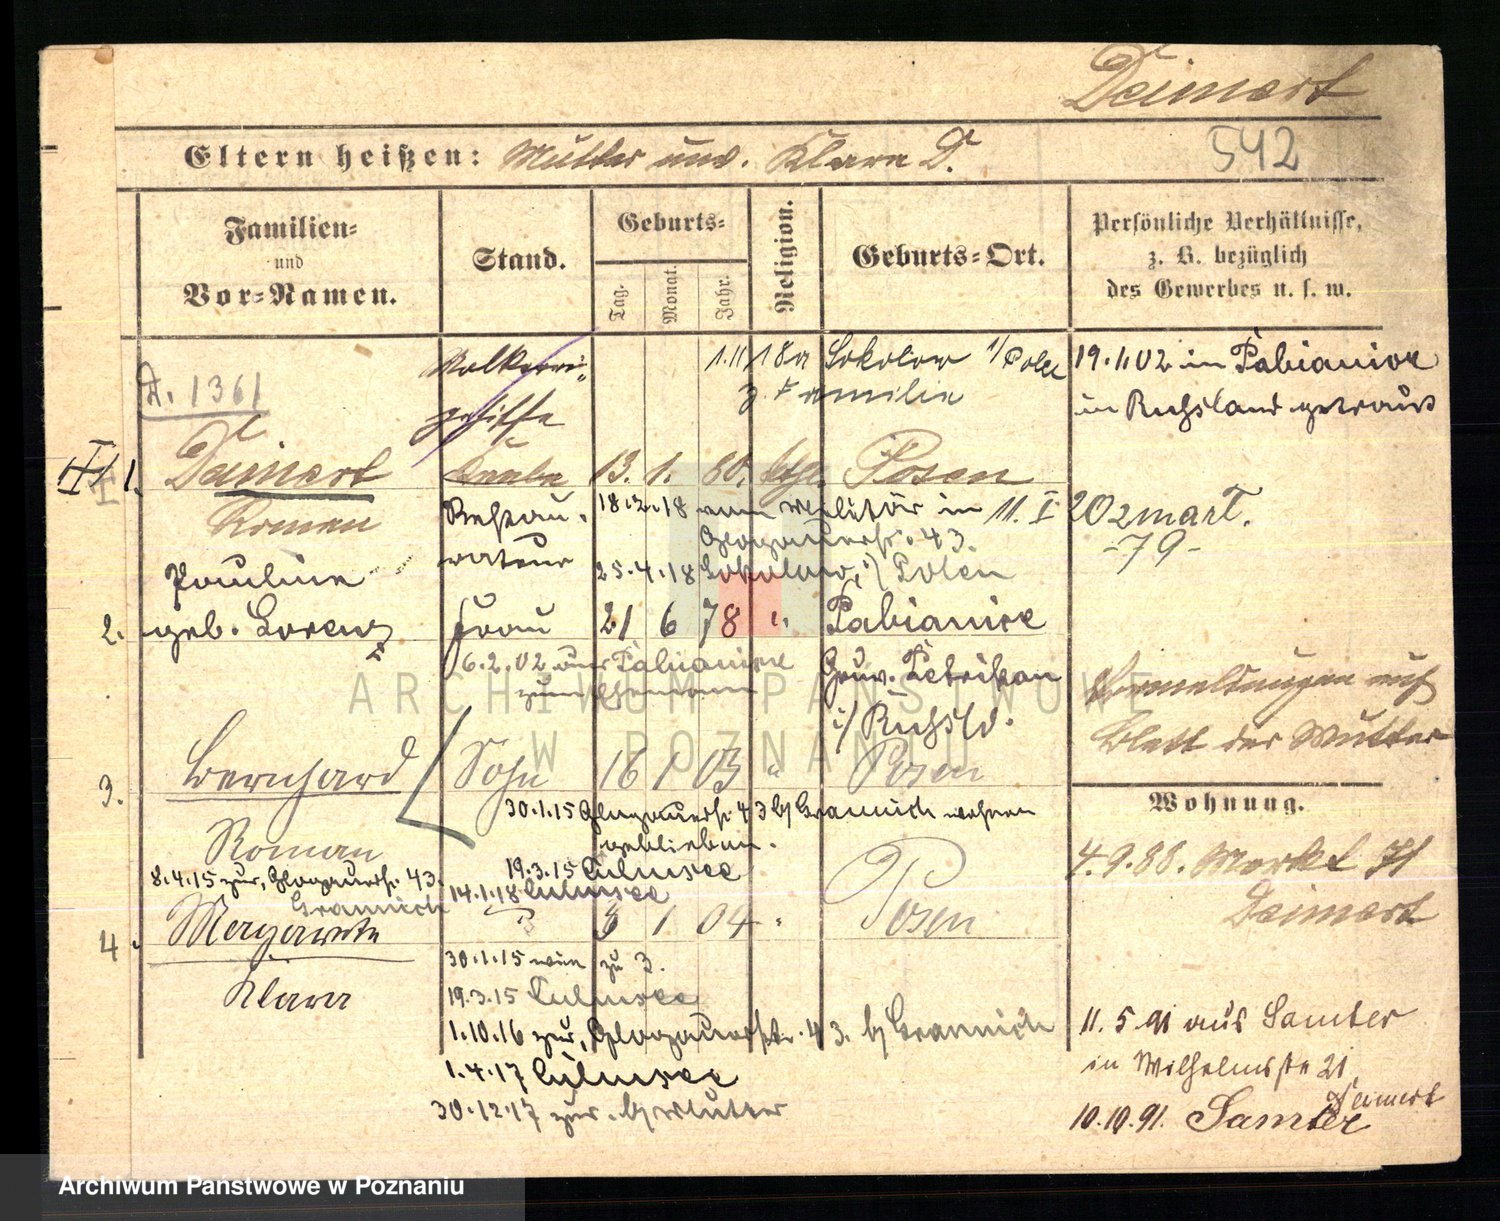 Deinert
542
Eltern heißen: Mutter unv. Klara D.
Familien-
und
Vor-Namen.
Stand.
Geburts-
Tag.
Monat.
Jahr.
Religion.
Geburts-Ort.
Persönliche Verhältnisse,
z. B. bezüglich
des Gewerbes u. s. w.
A. 1361
1.11.18 a Sokolow i/Polen
z. Familie
19.1.02 in Pabianice
in Russland getraut
1. Deinert Knabe 13. 1. 80. kth. Posen
Roman
Restau-
rateur
18.2.18 vom Militär in
Glogauerstr. 43.
11. I 202 mart.
-79-
25.4.18 Sokolow, i/ Polen
Pauline
2. geb. Lorenz Frau 21 6 78 ". Pabianice
6.2.02 aus Pabianice
zum Ehemann
Gouv. Petrikau
i/ Russld.
Vermeldungen auf
Blatt der Mutter
3. Bernhard Sohn 16 1 03 " Posen
Roman
30.1.15 Glogauerstr. 43 b/ Grannich wohnen
geblieben.
19.3.15 Culmsee
8.4.15 zur, Glogauerstr. 43.
Grannich
14.1.18 Culmsee
4. Margarete 3 1 04 " Posen
Klara
30.1.15 wie zu 3.
19.3.15 Culmsee
1.10.16 zur, Glogauerstr. 43. b/ Grannich
1.4.17 Culmsee
30.12.17 zur. b/ Mutter
Wohnung.
4.9.88. Markt 71
Deinert
11.5.91 aus Samter
in Wilhelmstr 21
Deinert
10.10.91. Samter
ARCHIWUM PAŃSTWOWE
W POZNANIU
Archiwum Państwowe w Poznaniu